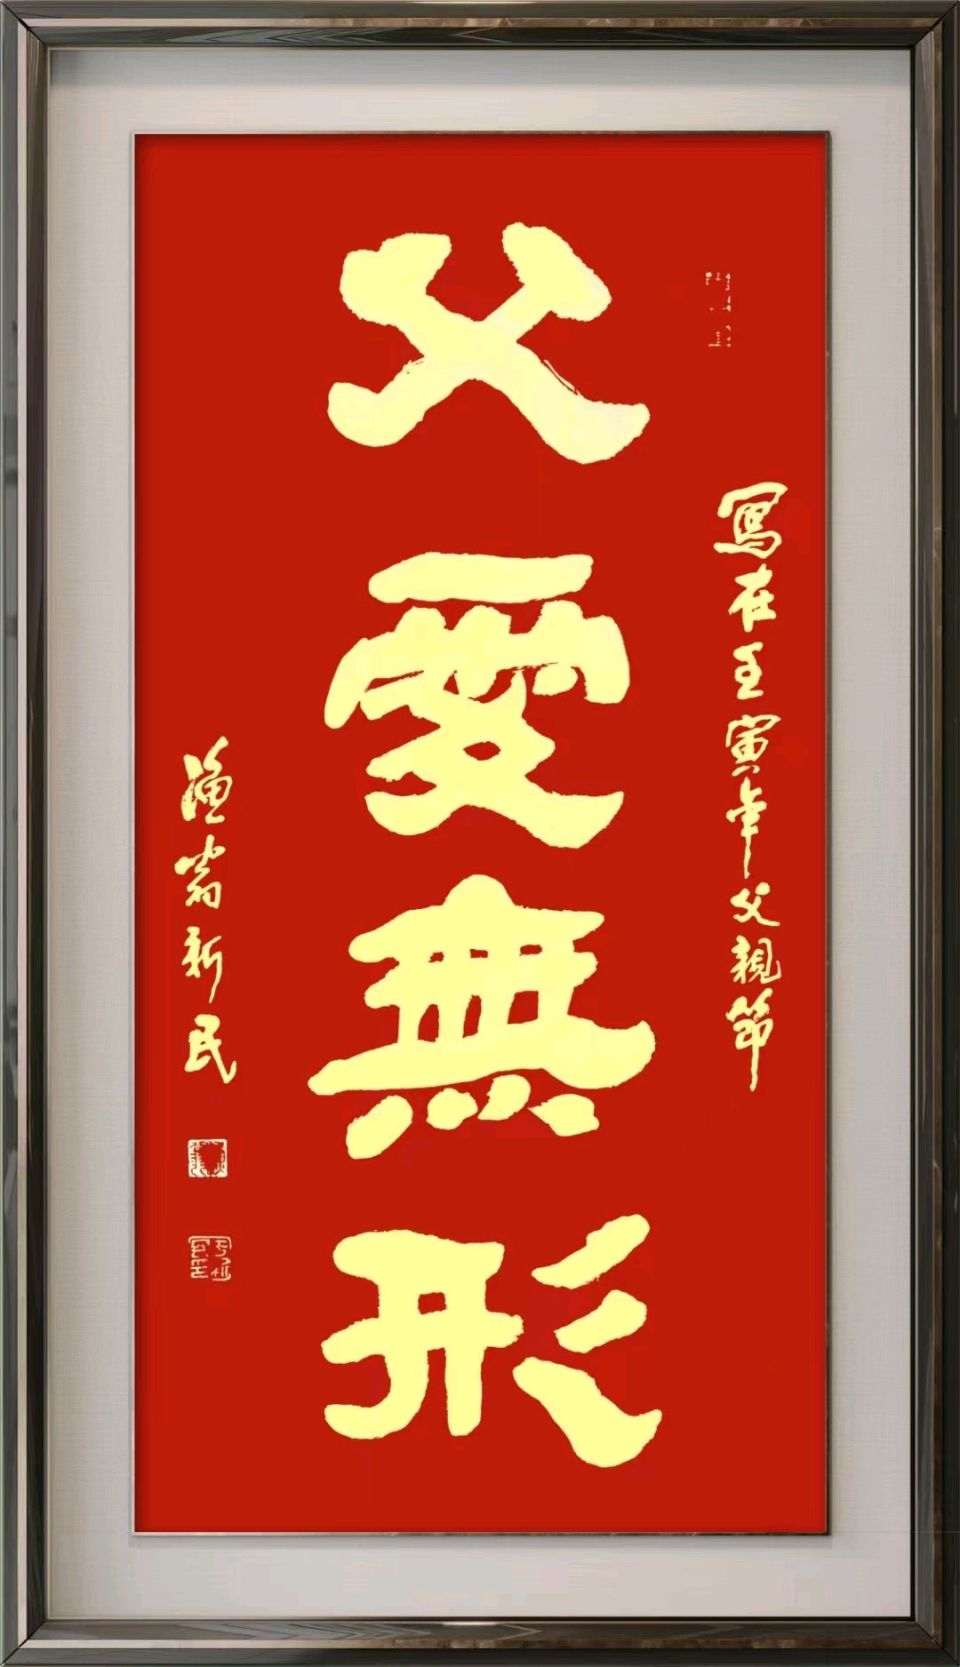 父愛無形
寫在壬寅年父親節
漁翁新民